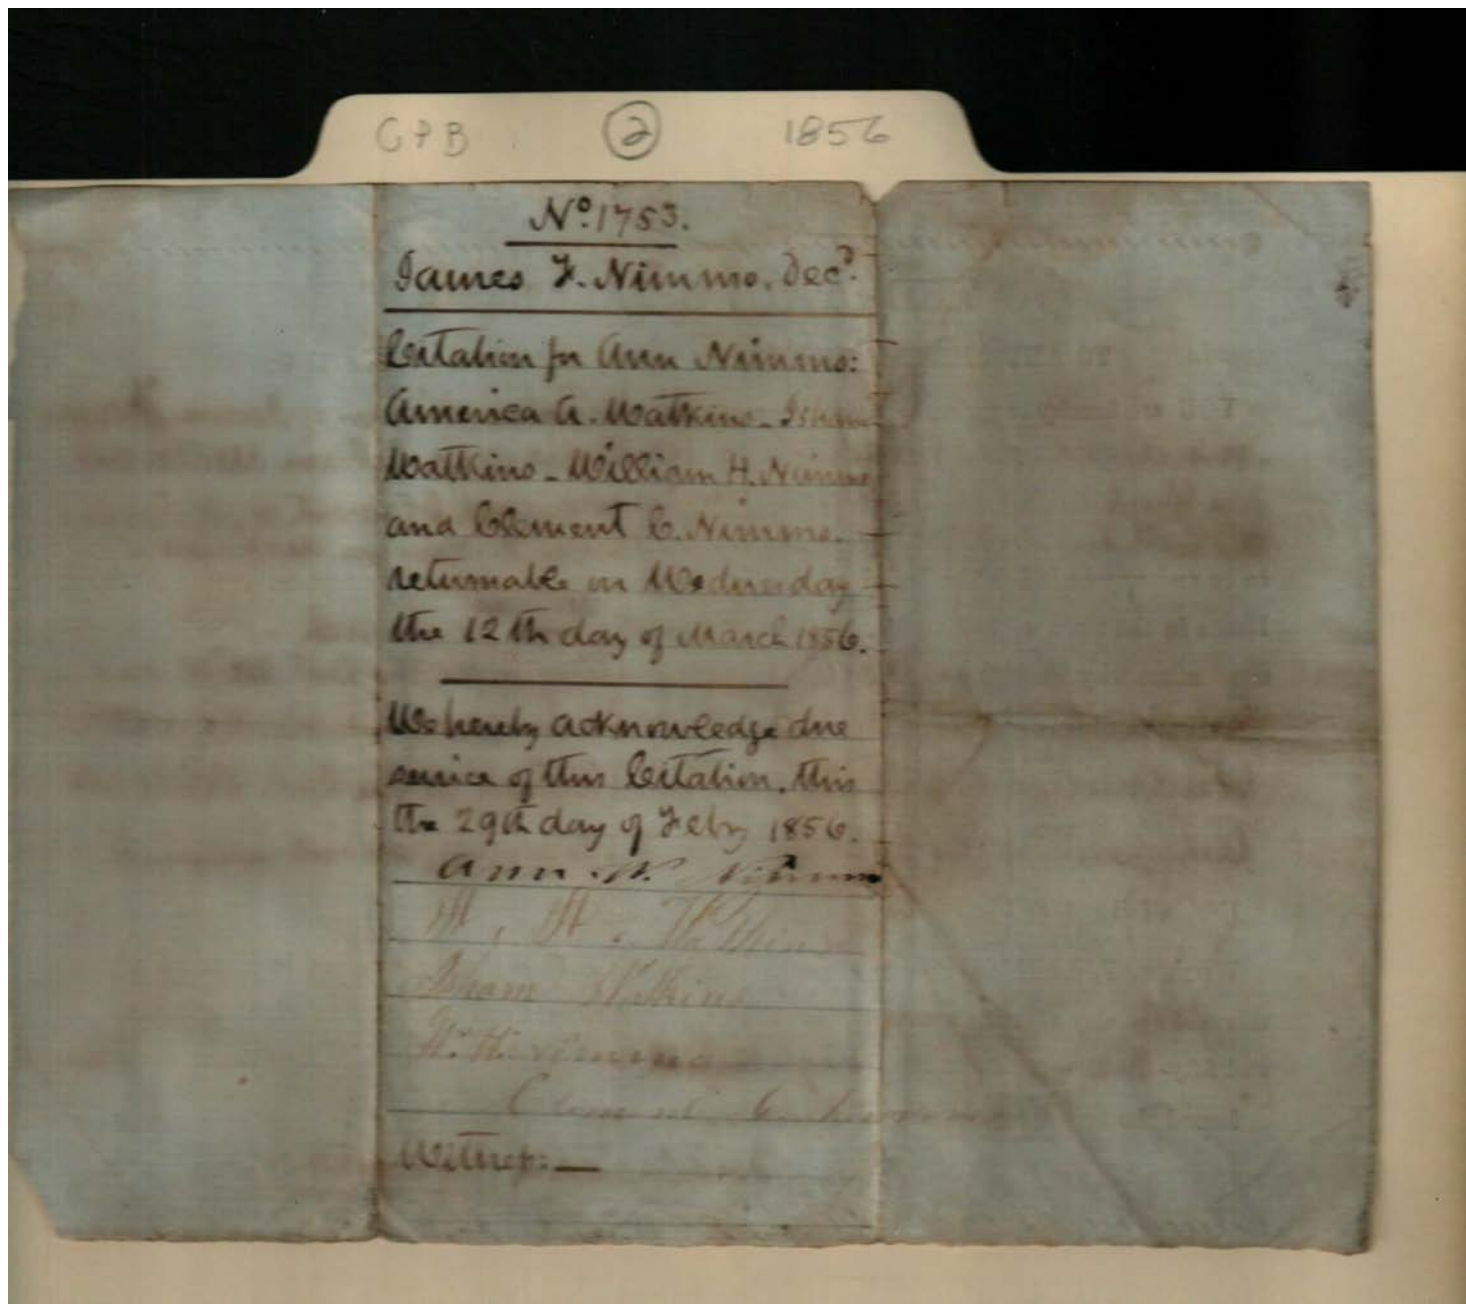 CPB 2 1856
No. 1753.
James F. Nimmo, Decd.
Citation for Ann Nimmo:
America A. Watkins - Isham
Watkins - William H. Nimmo
and Clement C. Nimmo.
returnable on Wednesday
the 12th day of March 1856.
We hereby acknowledge due
service of this Citation, this
the 29th day of Feby 1856.
Ann N. Nimmo
Isham Watkins
W. H. Nimmo
Clement C. Nimmo
Witness: —